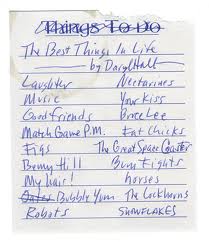 Things To Do
The Best Things In Life
- by Daryl Hall
Laughter Nectarines
Music Your Kiss
Good friends Bruce Lee
Match Game P.M. Fat Chicks
Figs The Great Space Coaster
Benny Hill Bum Fights
My hair! horses
Oates Bubbly Yum The Lockhorns
Robots SNOWFLAKES